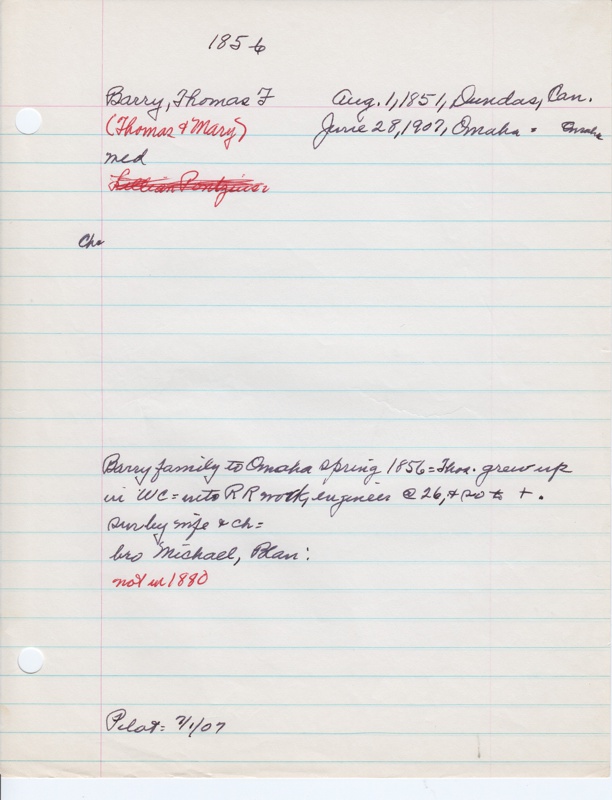 1856
Barry, Thomas F Aug. 1, 1851, Dundas, Can.
(Thomas & Mary) June 28, 1907, Omaha = Omaha
med
Lillian Pontzius
Ch=
Barry family to Omaha spring 1856 = Thos. grew up
in WC = into RR work, engineer @ 26, & so to +.
sur by wife & ch =
bro Michael, Blair:
not in 1880
Pilot: 7/1/07